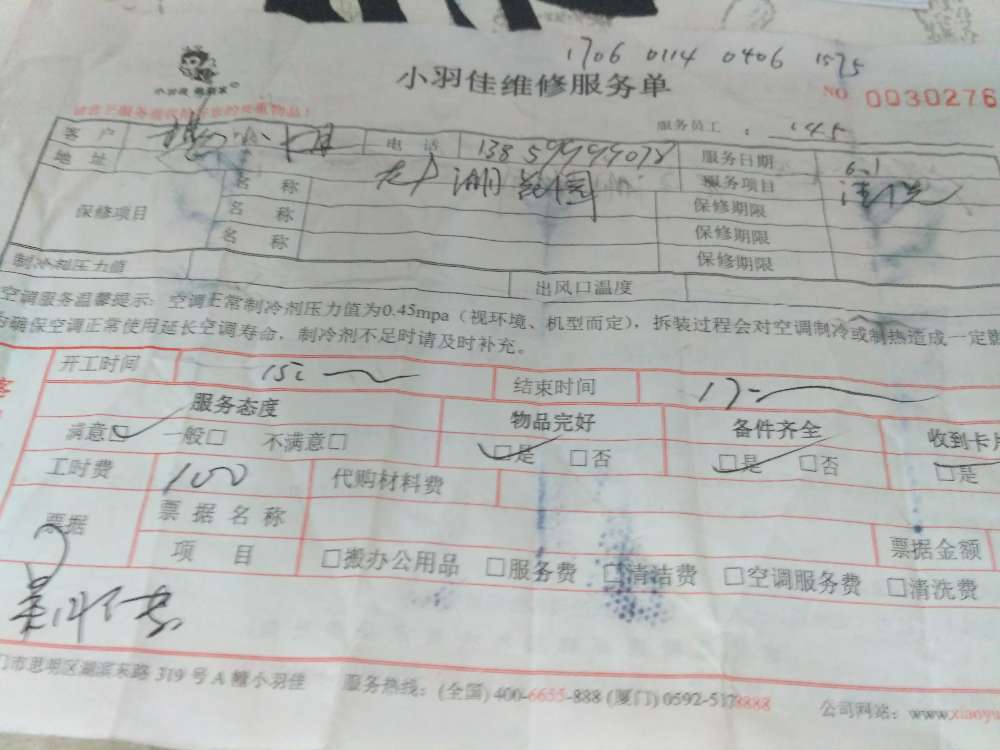 1706 0114 0406 1575
小羽佳维修服务单
NO 0030276
服务员工：
客户 电话 服务日期 6.1
地址 湖 园 服务项目
保修项目 名称 保修期限
名称 保修期限
名称 保修期限
制冷剂压力值 出风口温度
空调服务温馨提示：空调正常制冷剂压力值为0.45mpa（视环境、机型而定），拆装过程会对空调制冷或制热造成一定
确保空调正常使用延长空调寿命，制冷剂不足时请及时补充。
开工时间 结束时间
服务态度 物品完好 备件齐全 收到卡
满意□ 一般□ 不满意□ □是 □否 □是 □否 □是
工时费 100 代购材料费
票据 票据名称 票据金额
项目 □搬办公用品 □服务费 □清洁费 □空调服务费 □清洗费
门市思明区湖滨东路319号A幢小羽佳 服务热线：(全国)400-6655-888 (厦门)0592-5178888 公司网站：www.xianyu